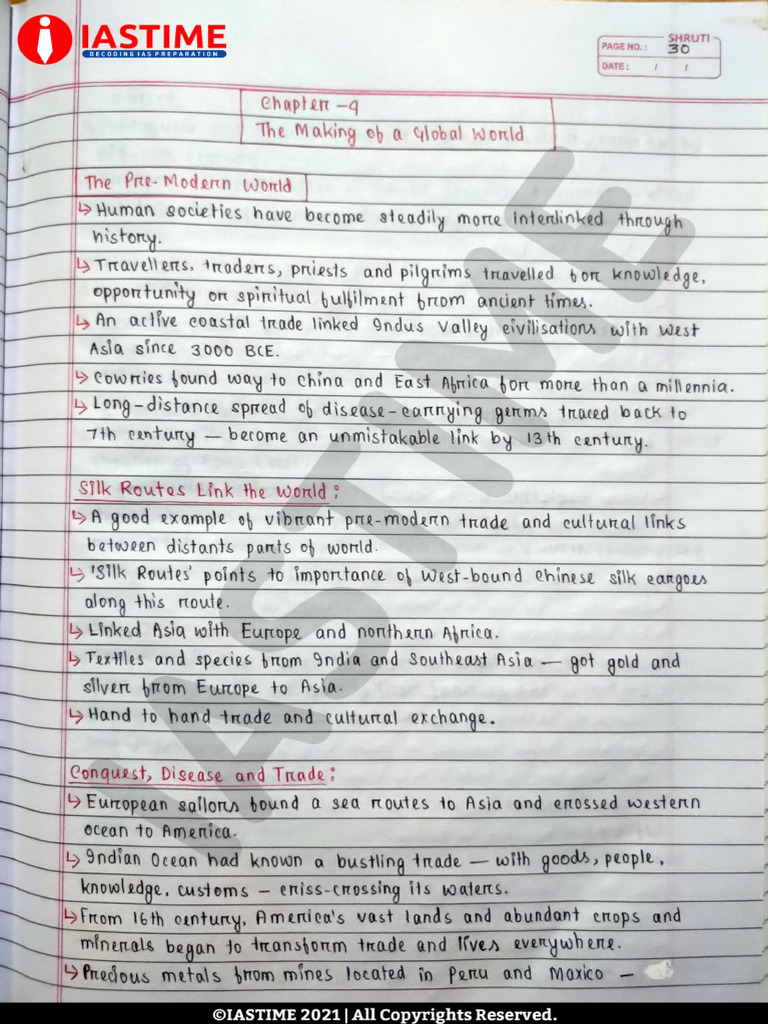 IASTIME
DECODING IAS PREPARATION
SHRUTI
PAGE NO.: 30
DATE: / /
Chapter-4
The Making of a Global World
The Pre-Modern World
↳ Human societies have become steadily more interlinked through
history.
↳ Travellers, traders, priests and pilgrims travelled for knowledge,
opportunity or spiritual fulfilment from ancient times.
↳ An active coastal trade linked Indus Valley civilisations with West
Asia since 3000 BCE.
↳ Cowries found way to China and East Africa for more than a millennia.
↳ Long-distance spread of disease-carrying germs traced back to
7th century — become an unmistakable link by 13th century.
Silk Routes Link the World:
↳ A good example of vibrant pre-modern trade and cultural links
between distants parts of world.
↳ 'Silk Routes' points to importance of West-bound Chinese silk cargoes
along this route.
↳ Linked Asia with Europe and northern Africa.
↳ Textiles and species from India and Southeast Asia — got gold and
silver from Europe to Asia.
↳ Hand to hand trade and cultural exchange.
Conquest, Disease and Trade:
↳ European sailors found a sea routes to Asia and crossed western
ocean to America.
↳ Indian Ocean had known a bustling trade — with goods, people,
knowledge, customs — criss-crossing its waters.
↳ From 16th century, America's vast lands and abundant crops and
minerals began to transform trade and lives everywhere.
↳ Precious metals from mines located in Peru and Maxico —
IASTIME
©IASTIME 2021 | All Copyrights Reserved.